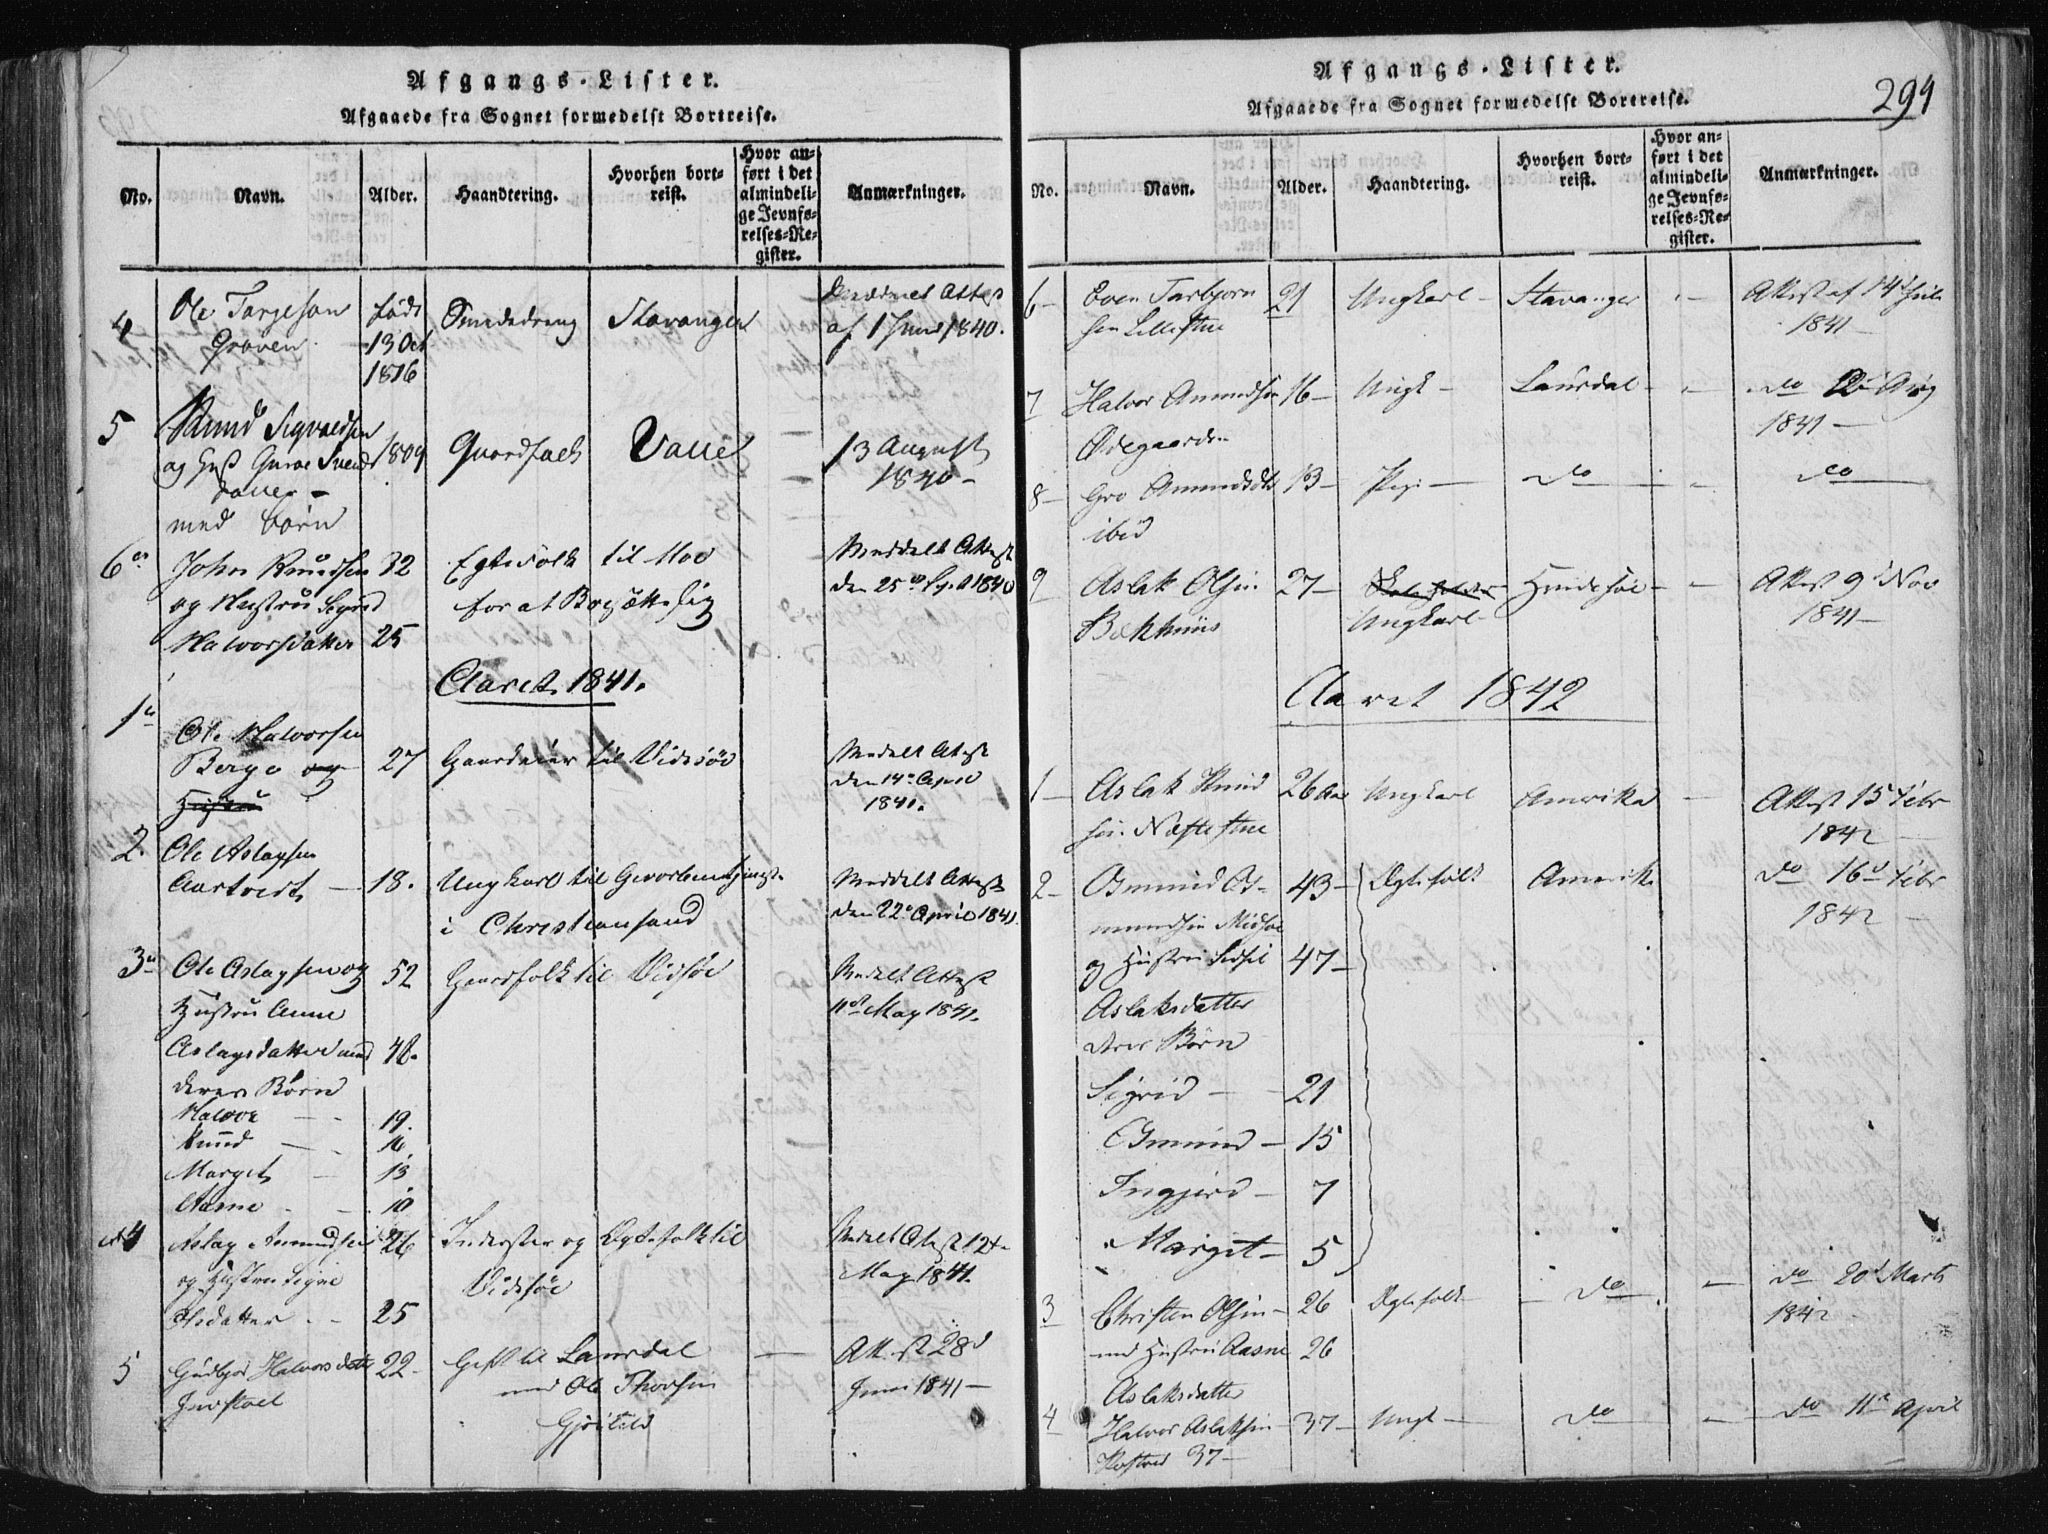 Afgangs-Lister.
Afgaaede fra Sognet formedelst Bortreise.
No.
Navn.
Alder.
Haandtering.
Hvorhen bort-
reist.
Hvor an-
ført i det
almindeli-
ge Jevnfø-
relses-Re-
gister.
Anmærkninger.
4
Ole Tarjeson
Graven
født
13 Oct
1816
Smededreng
Stavanger
Attest
af 1 Juni 1840.
5
Knud Sigvaldsen
og Guroe Svends
datter -
med børn
1809
Gaardfolk
Valle
13 August
1840 -
6
John Knudsen
og Hustru Sigrid
Halvorsdatter
32
25
Egtefolk til Moe
for at Bosætte sig
Meddelt Attest
den 25 Sept 1840
Aaret 1841.
1
Ole Halvorsen
Berge og
Hustru
27
Gaardeier til Vidsøe
Medelt Attest
den 14 April
1841.
2.
Ole Aslagsen
Aartvedt
18.
Ungkarl til
i Christiansand
Meddelt Attest
den 22 April 1841
3
Ole Aslagsen og
Hustru Anne
Aslagsdatter med
deres Børn
Halvor
Knud
Marget
Aasne
52
48.
19.
16
13
10
Gaardfolk til Vidsøe
Medelt Attest
11 May 1841.
4
Aslag Amundsen
og Hustru Signe
Olsdatter
26
25
Inderster og Egtefolk til
Vidsøe
Medelt Attest 12te
May 1841.
5
Gudbjør Halvorsdatter
22
Gift til Laurdal
med Ole Thorsen
Attest 28d
Juni 1841 -
Afgangs-Lister.
294
Afgaaede fra Sognet formedelst Bortreise.
No.
Navn.
Alder.
Haandtering.
Hvorhen bort-
reist.
Hvor an-
ført i det
almindeli-
ge Jevnfø-
relses-Re-
gister.
Anmærkninger.
6 -
Even Tarbjorn
sen Lillestue
21
Ungkarl -
Stavanger
Attest af 14d Juli
1841 -
7
Halvor Amundsen
Ødegaarden
16 -
Ungk -
Laurdal -
do Aug
1841 -
8 -
Gro Amundsdtr
ibid
13 -
Pige -
do
do
9
Aslak Olsen
Bækhuus
27 -
Ungkarl
Hvideseøe -
Attest 9d Nov
1841 -
Aaret 1842
1 -
Aslak Knud
sen Næstestue
26 Aar
Ungkarl
Amerika
Attest 15 Febr
1842 -
2 -
Osmund Os-
mundsen Midbøe
og Hustru Sidsel
Aslaksdatter
deres Børn
Sigrid -
Osmund -
Ingjerd -
Margit -
43 -
47 -
21
15
7
5
Egtefolk
Amerika
do 16d Febr
1842 -
3
Christen Olsen -
med Hustru Aasne
Aslaksdatter
26
26
Egtefolk
do
do 20d Marts
1842
4
Halvor Aslaksen
37 -
37 -
Ungk -
do
do 11d April